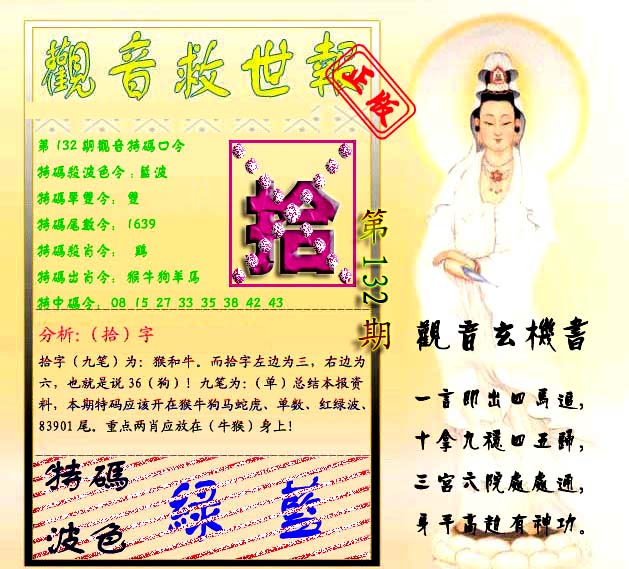 觀音救世報
正传
第132期觀音特碼口令
特碼殺波色令:藍波
特碼單雙令: 雙
特碼尾數令: 1639
特碼殺肖令: 鷄
特碼出肖令: 猴牛狗羊馬
特中碼令: 08 15 27 33 35 38 42 43
拾
第132期
分析:(拾)字
拾字(九笔)为:猴和牛。而拾字左边为三,右边为
六,也就是说36(狗)!九笔为:(单)总结本报资
料,本期特码应该开在猴牛狗马蛇虎、单数、红绿波、
83901尾。重点两肖应放在(牛猴)身上!
特碼
波色
綠 藍
觀音玄機書
一言即出四馬追,
十拿九穩四五歸,
三宮六院處處通,
身平高超有神功。